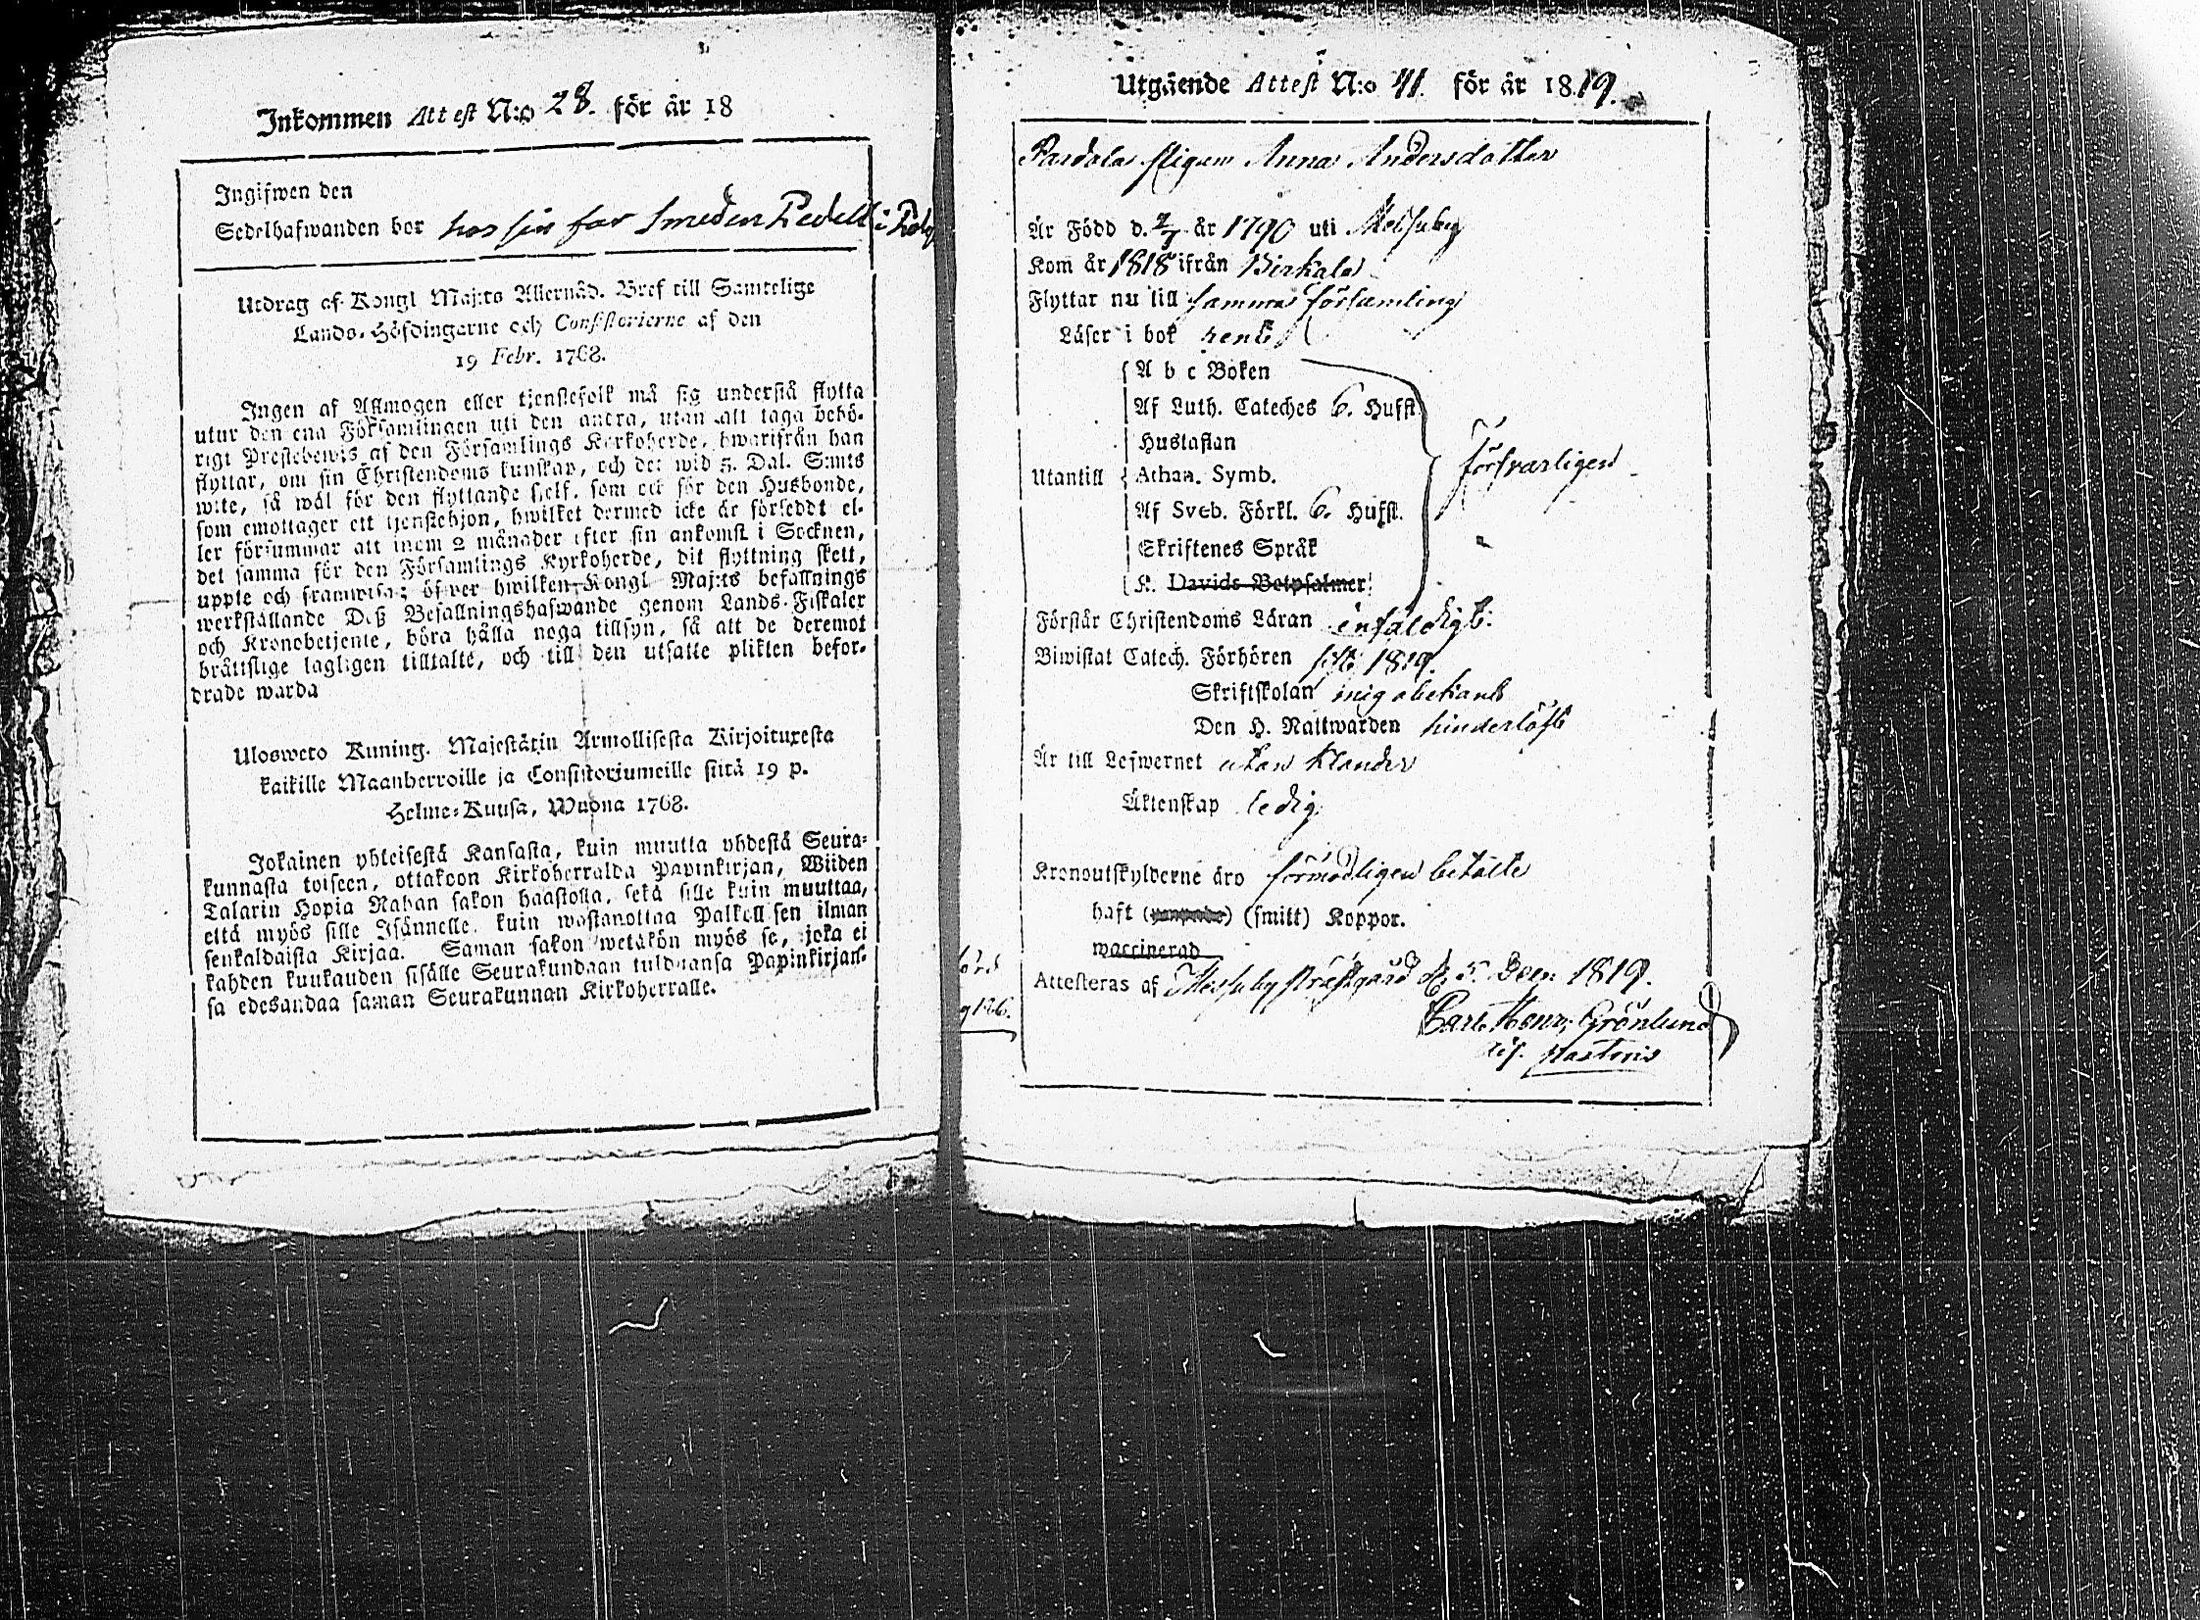 Inkommen Attest N:o 28. för år 18
Ingifwen den
Sedelhafwanden bor hos sin far Smeden Pedell i
Utdrag af Kongl Maj:ts Allernåd. Bref till Samtelige
Lands-Höfdingarne och Consistorierne af den
19 Febr. 1768.
Ingen af Allmogen eller tjenstefolk må sig understå flytta
utur den ena Församlingen uti den andra, utan att taga behö-
rigt Prestebewis af den Församlings Kyrkoherde, hwarifrån han
flyttar, om sin Christendoms kunskap, och det wid 5. Dal. S:mts
wite, så wäl för den flyttande sjelf, som ock för den Husbonde,
som emottager ett tjenstehjon, hwilket dermed icke är försedt el-
ler försummar att inom 2 månader efter sin ankomst i Socknen,
det samma för den Församlings Kyrkoherde, dit flyttning skett,
uppte och framwisa; öfwer hwilken Kongl Maj:ts befallnings
werkställande Deß Befallningshafwande genom Lands-Fiskaler
och Kronobetjente, böra hålla noga tillsyn, så att de deremot
bråttslige lagligen tilltalte, och till den utsatte plikten befor-
drade warda
Ulosweto Kuning. Majestätin Armollisesta Kirjoituxesta
kaikille Maanherroille ja Consistoriumeille siitä 19 p.
Helme-Kuusa, Wuona 1768.
Jokainen yhteisestä Kansasta, kuin muutta yhdestä Seura-
kunnasta toiseen, ottakoon Kirkoherralda Papinkirjan, Wiiden
Talarin Hopia Rahan sakon haastolla, sekä sille kuin muuttaa,
että myös sille Isännelle, kuin wastanottaa Palkollisen ilman
senkaldaista Kirjaa. Saman sakon wetäkön myös se, joka ei
kahden kuukauden sisälle Seurakundaan tulduansa Papinkirjan-
sa edesandaa saman Seurakunnan Kirkoherralle.
Utgående Attest N:o 41. för år 1819.
Pardala pigan Anna Andersdotter
Är Född d. 2/7 år 1790 uti Messuby
Kom år 1818 ifrån Birkala
Flyttar nu till samma församling
Läser i bok rent
A b c Boken
Af Luth. Cateches 6. Hufst.
Hustaflan
Utantill Athan. Symb. försvarligen
Af Sveb. Förkl. 6. Hufst.
Skriftenes Språk
K. Davids Botpsalmer
Förstår Christendoms Läran enfaldigt.
Biwistat Catech. Förhören sist 1819.
Skriftskolan mig obekant
Den H. Nattwarden hinderlöst
Är till Lefwernet utan klander
Äktenskap ledig.
Kronoutskylderne äro förmodligen betalte
haft (smitt) Koppor.
waccinerad
Attesteras af Messuby prästgård d. 5 Dec. 1819.
Carl Henr. Grönlund
Adj. Pastoris